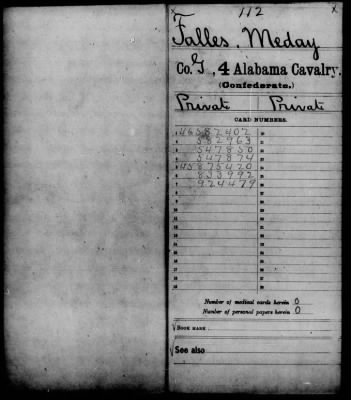 x 112 x
Falles, Meday
Co. G, 4 Alabama Cavalry.
(Confederate.)
Private Private
CARD NUMBERS.
1 46582402 20
2 582963 21
3 547850 22
4 547874 23
5 45875420 24
6 833992 25
7 924479 26
8
9
10
11
12
13
14
15
16
17
18
19
Number of medical cards herein 0
Number of personal papers herein 0
BOOK MARK:
See also